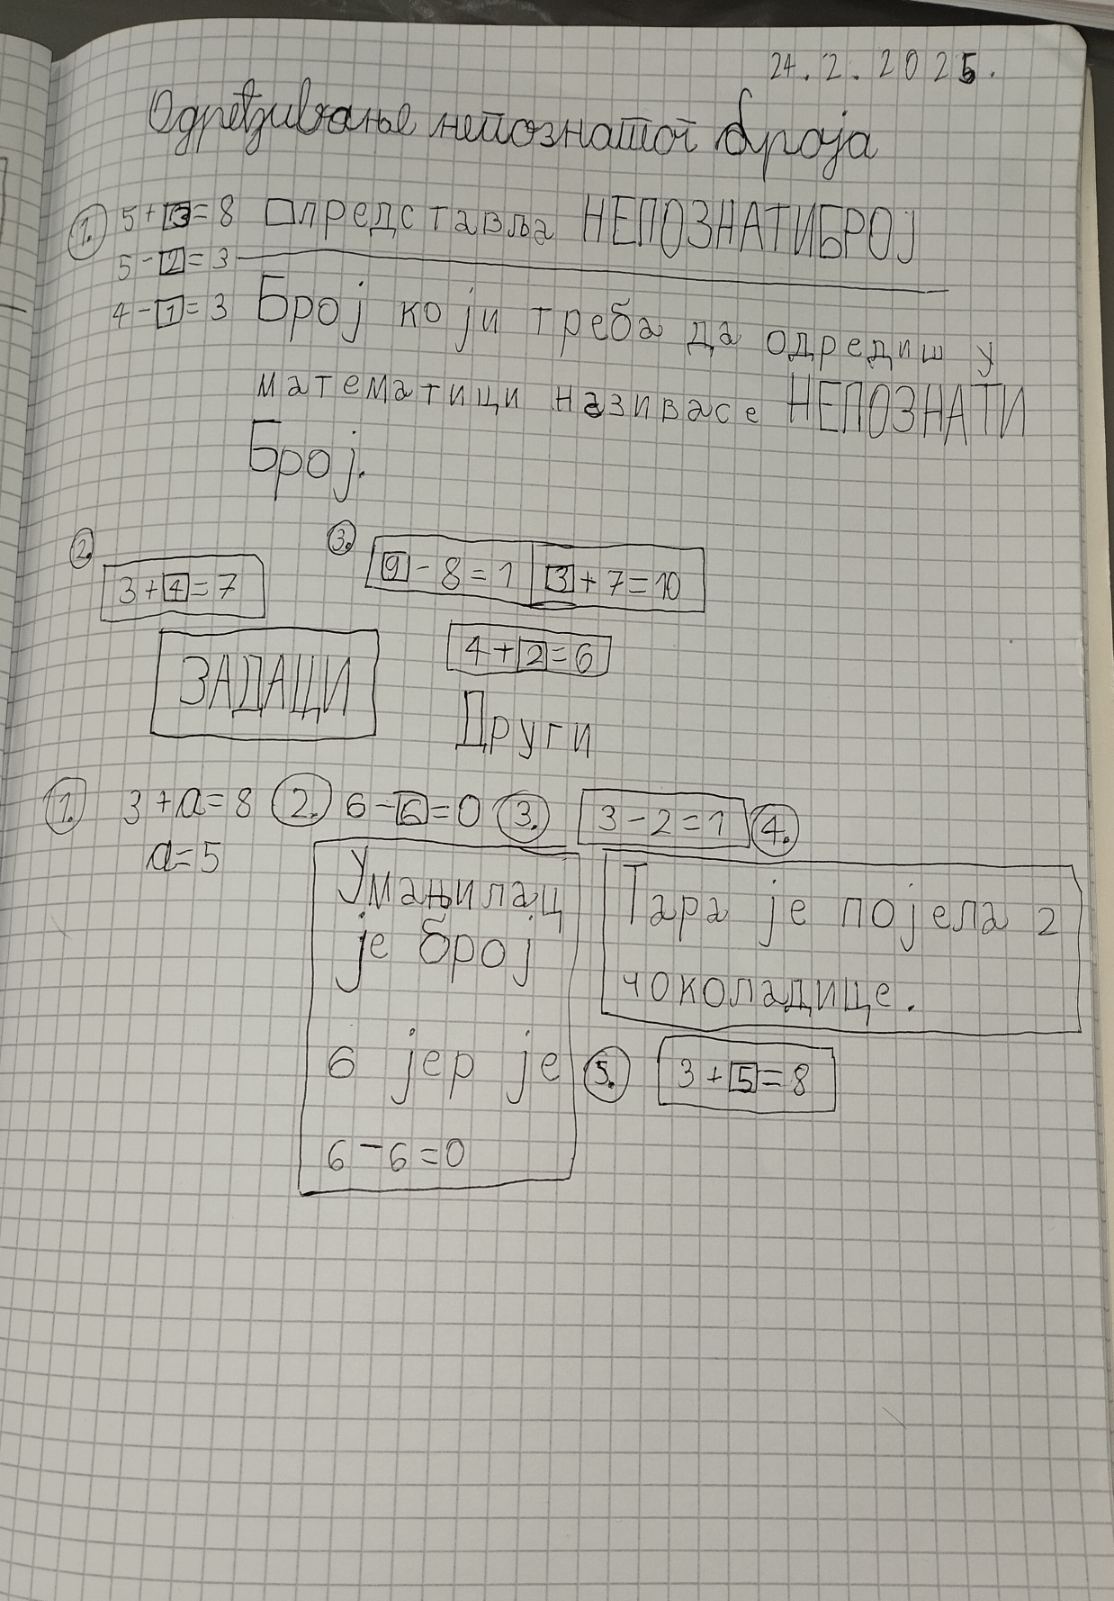 24.2.2025.
Одређивање непознатог броја
1. 5+3=8 □представља НЕПОЗНАТИБРОЈ
5-2=3
4-1=3 Број који треба да одредиш у
математици называсе НЕПОЗНАТИ
Број.
2. 3. 9-8=1 3+7=10
3+4=7
4+2=6
ЗАДАЦИ
Други
1. 3+a=8 2. 6-6=0 3. 3-2=1 4.
a=5
Умањилац
је број
6 јер је
6-6=0
Тара је појела 2
чоколадице.
5. 3+5=8